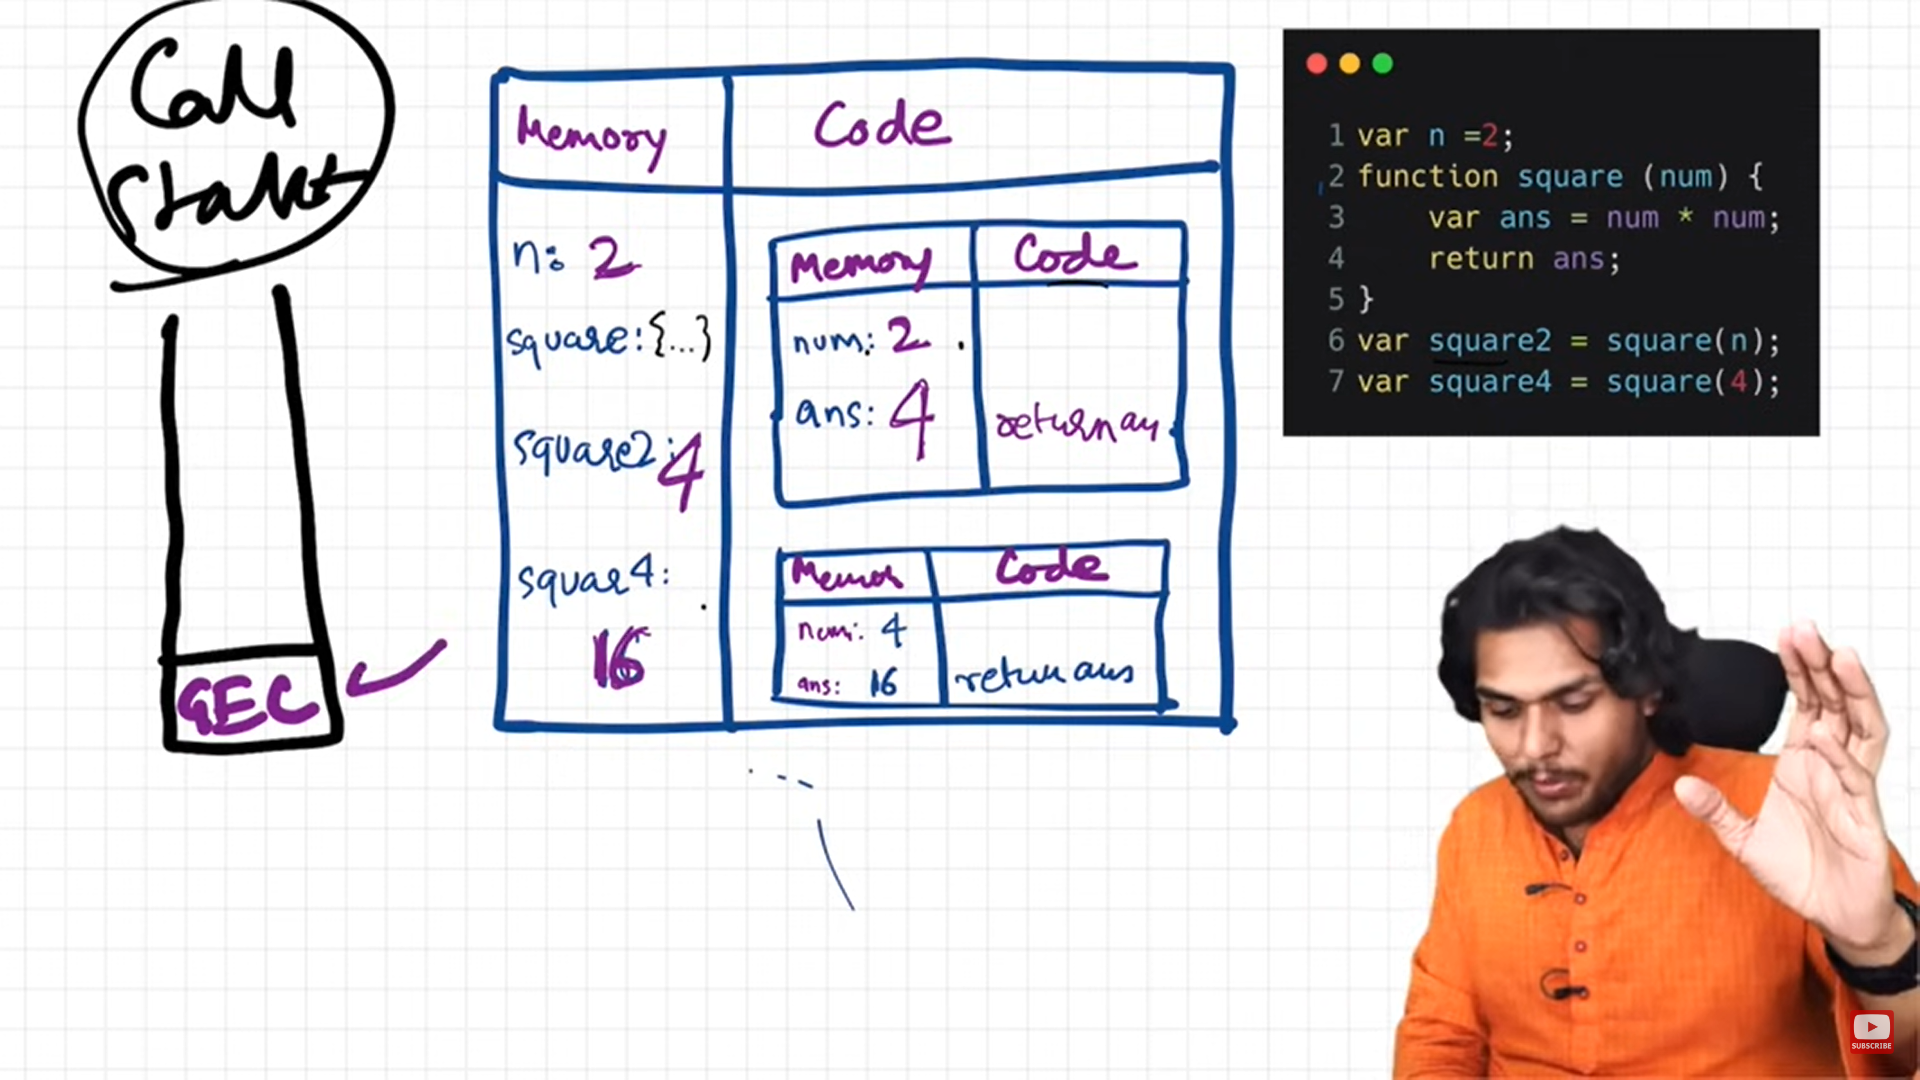 Call
Stack
GEC
Memory Code
n: 2
square: {...}
square2: 4
squar4:
16
Memory Code
num: 2
ans: 4
return an
Memor Code
num: 4
ans: 16
return ans
1 var n =2;
2 function square (num) {
3 var ans = num * num;
4 return ans;
5 }
6 var square2 = square(n);
7 var square4 = square(4);
SUBSCRIBE